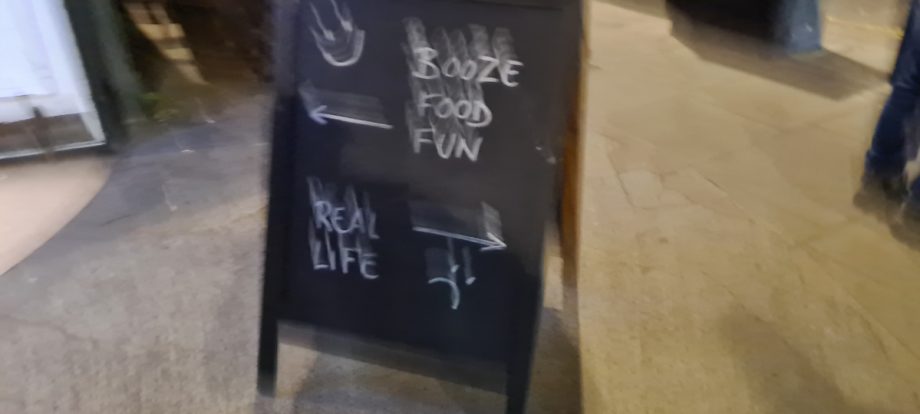 BOOZE
FOOD
FUN
REAL
LIFE